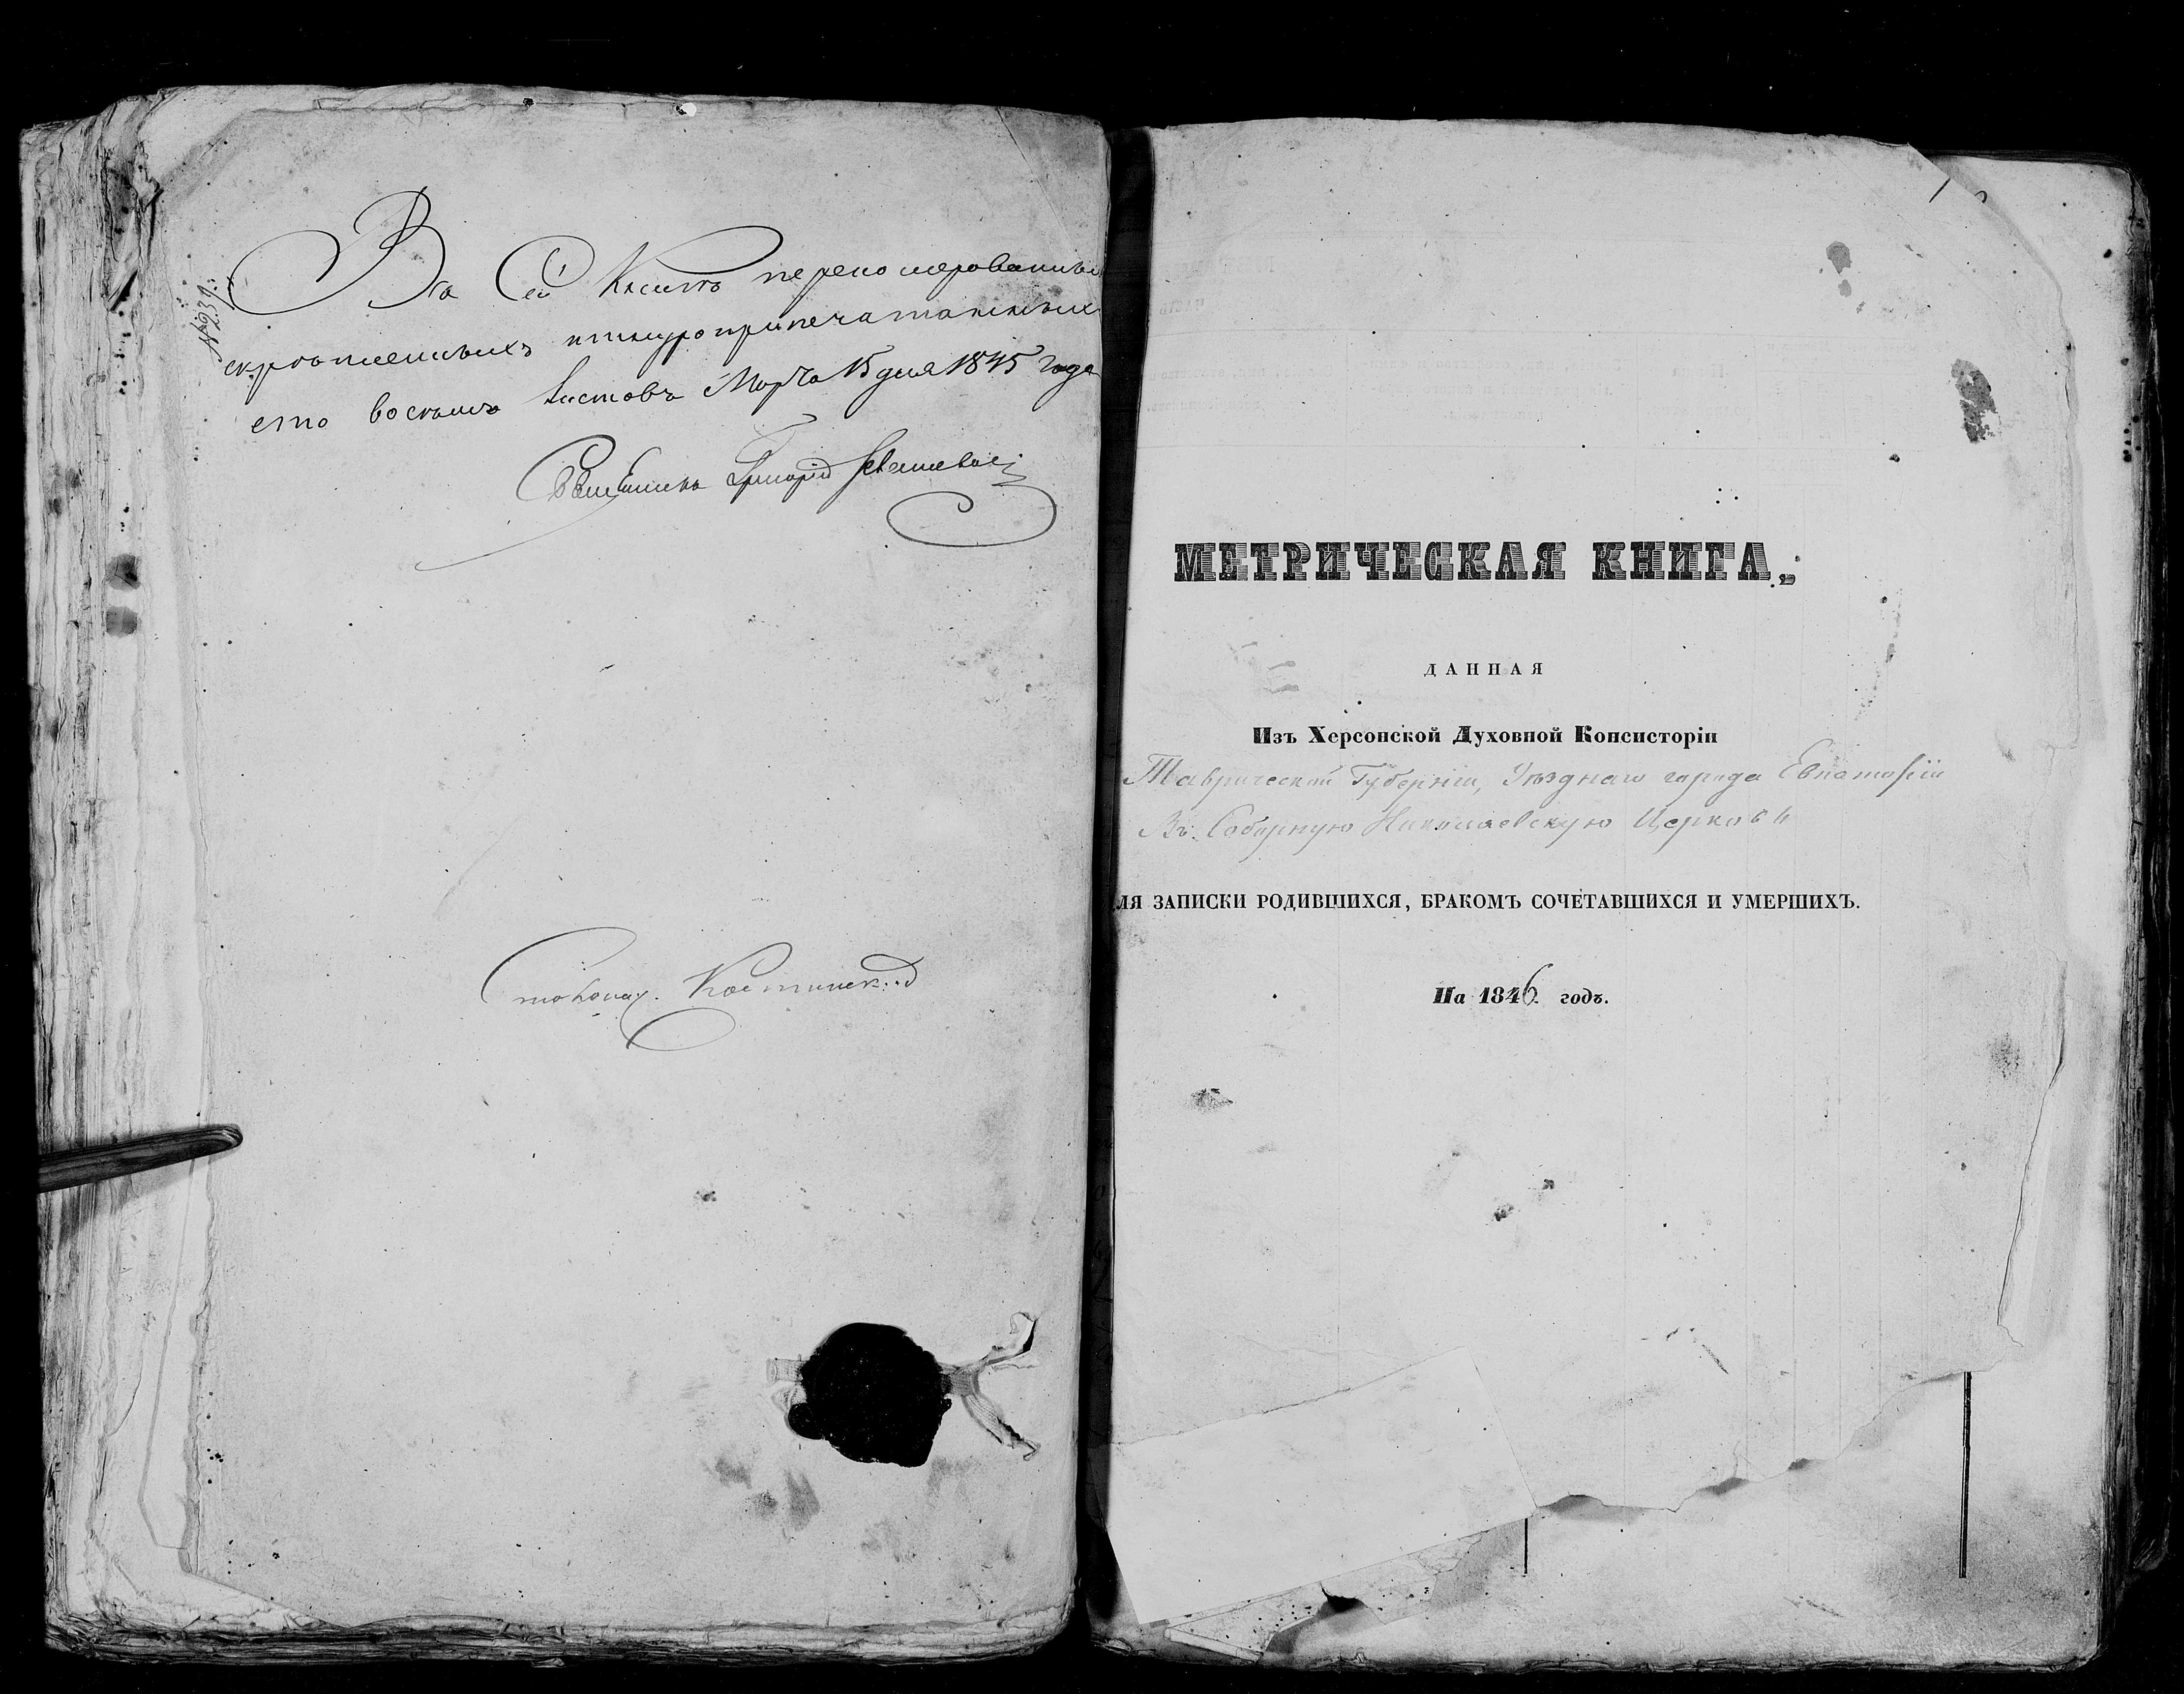 №239.
Въ Сей Книгѣ перенумерованныхъ
скрѣпленныхъ и шнуроприпечатанныхъ
сто восемь листовъ Марта 15 дня 1845 года
Священникъ Григорій
Столонач.
1
МЕТРИЧЕСКАЯ КНИГА,
ДАННАЯ
Изъ Херсонской Духовной Консисторіи
Таврической Губерніи, Уѣзднаго города Евпаторіи
Въ Соборную Николаевскую Церковь
ЛЯ ЗАПИСКИ РОДИВШИХСЯ, БРАКОМЪ СОЧЕТАВШИХСЯ И УМЕРШИХЪ.
На 1846 годъ.